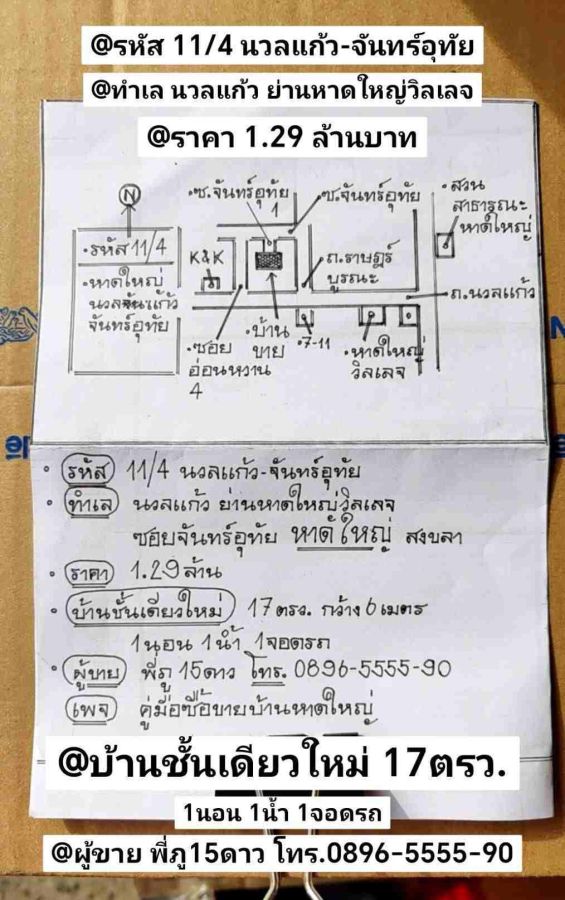 @รหัส 11/4 นวลแก้ว-จันทร์อุทัย
@ทำเล นวลแก้ว ย่านหาดใหญ่วิลเลจ
@ราคา 1.29 ล้านบาท
N
•รหัส 11/4
•หาดใหญ่
นวลจันแก้ว
จันทร์อุทัย
•ซ.จันทร์อุทัย
1
•ซ.จันทร์อุทัย
•สวน
สาธารณะ
หาดใหญ่
K&K
•ถ.ราษฎร์
บูรณะ
•ถ.นวลแก้ว
•ซอย
อ่อนหวาน
4
•บ้าน
ขาย
•7-11
•หาดใหญ่
วิลเลจ
• รหัส 11/4 นวลแก้ว-จันทร์อุทัย
• ทำเล นวลแก้ว ย่านหาดใหญ่วิลเลจ
ซอยจันทร์อุทัย หาดใหญ่ สงขลา
• ราคา 1.29 ล้าน
• บ้านชั้นเดียวใหม่ 17 ตรว. กว้าง 6 เมตร
1นอน 1น้ำ 1จอดรถ
• ผู้ขาย พี่ภู 15ดาว โทร. 0896-5555-90
เพจ คู่มือซื้อขายบ้านหาดใหญ่
@บ้านชั้นเดียวใหม่ 17ตรว.
1นอน 1น้ำ 1จอดรถ
@ผู้ขาย พี่ภู15ดาว โทร.0896-5555-90